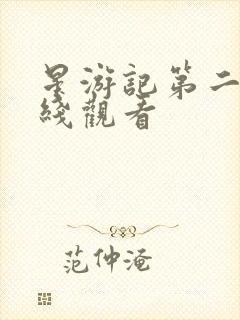 星游記第二
綫觀看
范仲淹